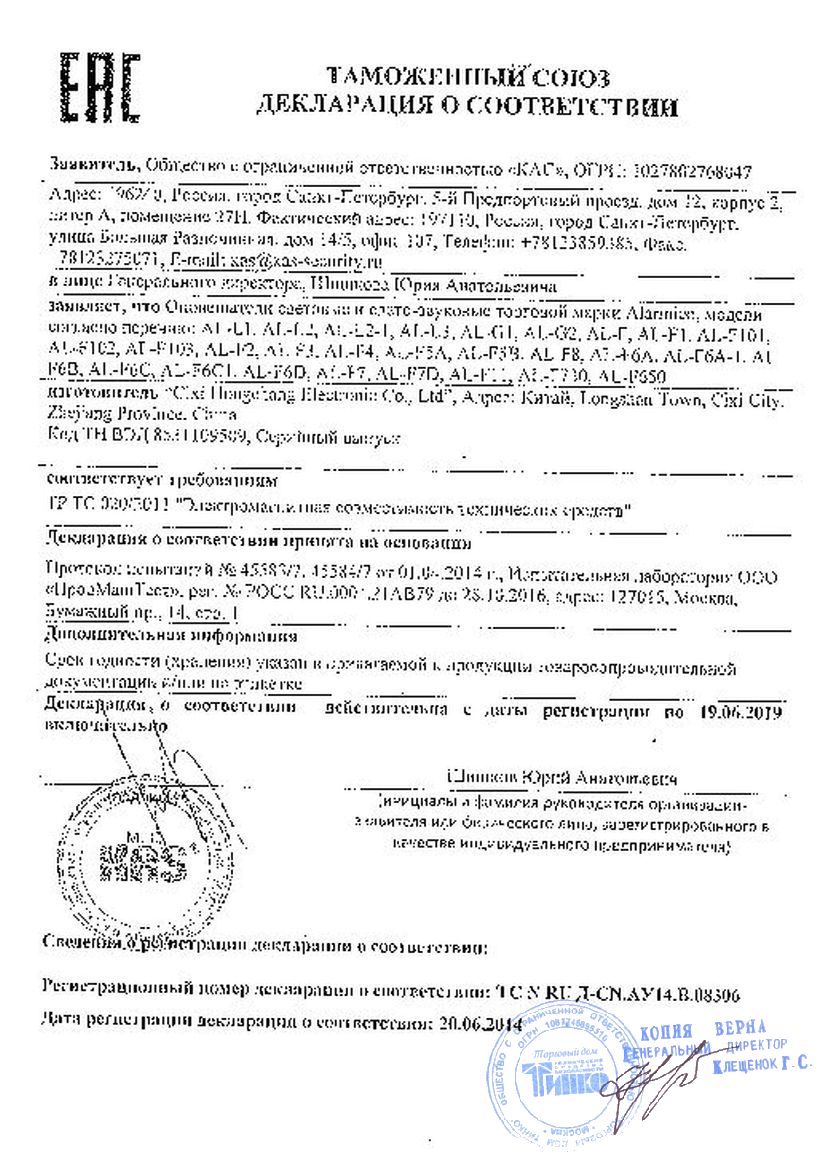 ЕАС
ТАМОЖЕННЫЙ СОЮЗ
ДЕКЛАРАЦИЯ О СООТВЕТСТВИИ
Заявитель, Общество с ограниченной ответственностью «КАС», ОГРН: 1027802768047
Адрес: Россия, город Санкт-Петербург, 5-й Предпортовый проезд, дом 12, корпус 2,
литер А, помещение 27Н, Фактический адрес: 197110, Россия, город Санкт-Петербург,
улица Большая Разночинная, дом 14/5, офис 107, Телефон: Факс:
E-mail: kas@kas-security.ru
в лице Генерального директора, Шишкова Юрия Анатольевича
заявляет, что Оповещатели световые и свето-звуковые торговой марки Alarmico, модели
согласно перечню: AL-L1, AL-L2, AL-L2-1, AL-L3, AL-G1, AL-G2, AL-F, AL-F1, AL-F101,
AL-F102, AL-F103, AL-F2, AL-F3, AL-F4, AL-F5A, AL-F5B, AL-F8, AL-F6A, AL-F6A-1, AL
F6B, AL-F6C, AL-F6C1, AL-F6D, AL-F7, AL-F7D, AL-F11, AL-F650
изготовитель "Cixi Electronic Co., Ltd", Адрес: Китай, Longshan Town, Cixi City,
Zhejiang Province, China
Код ТН ВЭД 8531109509, Серийный выпуск
соответствует требованиям
ТР ТС 020/2011 "Электромагнитная совместимость технических средств"
Декларация о соответствии принята на основании
Протокол испытаний № 45583/7, 45584/7 от 2014 г., Испытательная лаборатория ООО
«ПромМашТест», рег. № РОСС RU.0001.21АВ79 до 28.10.2016, адрес: 127015, Москва,
Бумажный пр., 14, стр. 1
Дополнительная информация
Срок годности (хранения) указан в прилагаемой к продукции товаросопроводительной
документации и/или на этикетке
Декларация о соответствии действительна с даты регистрации по 19.06.2019
включительно
Шишков Юрий Анатольевич
(инициалы и фамилия руководителя организации-
заявителя или физического лица, зарегистрированного в
качестве индивидуального предпринимателя)
М.
Сведения о регистрации декларации о соответствии:
Регистрационный номер декларации о соответствии: ТС N RU Д-CN.АУ14.В.08306
Дата регистрации декларации о соответствии: 20.06.2014
ОБЩЕСТВО С ОГРАНИЧЕННОЙ ОТВЕТСТВЕННОСТЬЮ
Торговый дом
ТИНКО
ТЕХНИЧЕСКИЕ
СРЕДСТВА
БЕЗОПАСНОСТИ
МОСКВА
КОПИЯ ВЕРНА
ГЕНЕРАЛЬНЫЙ ДИРЕКТОР
КЛЕЩЕНОК Г.С.